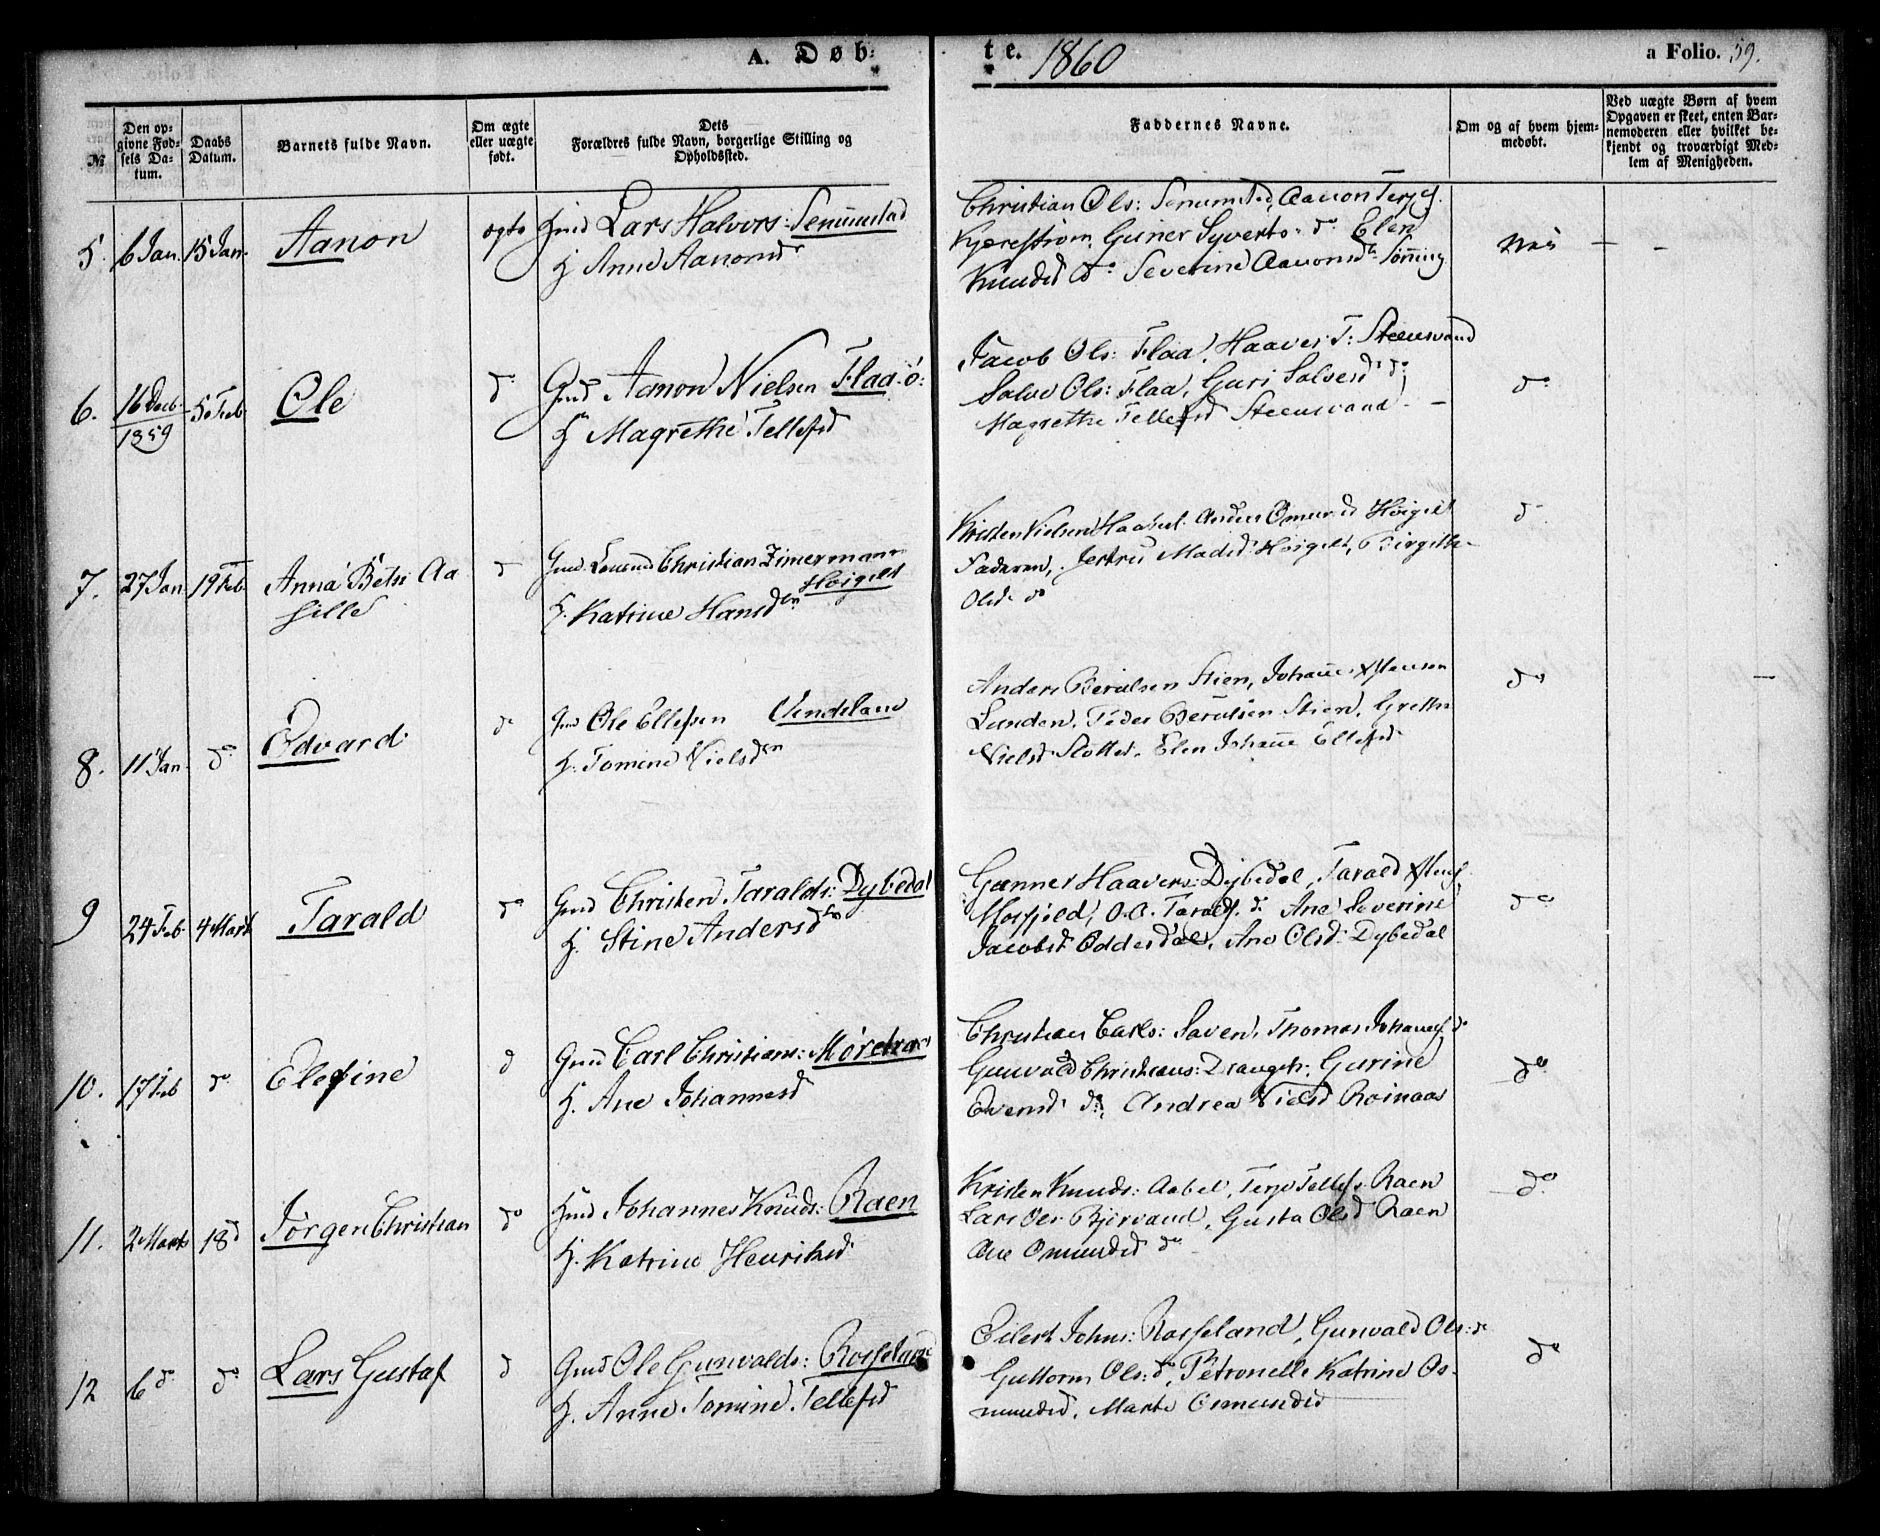 A. Døbte. 1860
a Folio. 59.
№
Den opgivne Fødsels Datum.
Daabs Datum.
Barnets fulde Navn.
Om ægte eller uægte født.
Dets Forældres fulde Navn, borgerlige Stilling og Opholdssted.
Faddernes Navne.
Om og af hvem hjemmedøbt.
Ved uægte Børn af hvem Opgaven er skeet, enten Barnemoderen eller hvilket bekjendt og troværdigt Medlem af Menigheden.
5. 6 Jan. 15 Jan. Aanon ægte Gmd Lars Halvors: Senumstad
H Anne Aanonsd
Christian Ols: Senumsted, Aanon Terjes.
Kjærestrøm, Guner Syverts: do Elen
Knudsd do Severine Aanonsd
Nei
6. 16 Decb. 1859 5 Feb Ole do Gmd Aanon Nielsen Flaa
H Magrethe Tellefsd
Jacob Ols: Flaa, Haaver T: Steensvand
Salve Ols: Flaa, Guri Salvesd do,
Magrethe Tellefsd Steensvand
do
7. 27 Jan 19 Feb. Anna Betsi Aa
sille
do Gmd. Christian Zimermann
Høigilt
H. Katrine Hansd
Kristen Nielsen Anders Omunsd Høigilt
Faderen, Jertru Madsd Høigilt, Birgitte
Olsd do
do
8. 11 Jan. do Edvard do Gmd Ole Ellefsen Vendeland
H. Tomine Nielsd
Anders Berulsen Stien, Johannes
Lunden, Peder Berulsen Stien, Grethe
Nielsd Slottet, Elen Johanne Ellefsd
do
9 24 Feb. 4 Mart Tarald do Gmd Christen Taralds: Dybedal
H. Stine Andersd
Gunner Haavers: Dybedal, Tarald
Mosfjeld, O.O. Taralds. do Ane Severine
Jacobsd Oddersdal, Ane Olsd: Dybedal
do
10. 17 Feb do Elefine do Gmd Carl Christians: Mørch
H. Ane Johannesd
Christian Carls: Saven, Thomas Johannes do
Gunvald Christians: Drangsh: Gurine
Evensd do, Andrea Nielsd Roinaas
do
11. 2 Marts 18 do Jørgen Christian do Gmd Johannes Knuds: Raen
H. Katrine Henriksd
Kristen Knuds: Aabel, Terje Tellefs Raen
Lars Ols: Bjorvand, Gusta Olsd Raen
Ane Omundsd do
do
12 6 do do Lars Gustaf do Gmd Ole Gunvalds: Rosseland
H. Anne Tomine Tellefsd
Eilert Johns: Rosseland, Gunvald Ols: do
Guttorm Ols: do, Petronelle Katrine Os-
mundsd, Marte Osmundsd
do